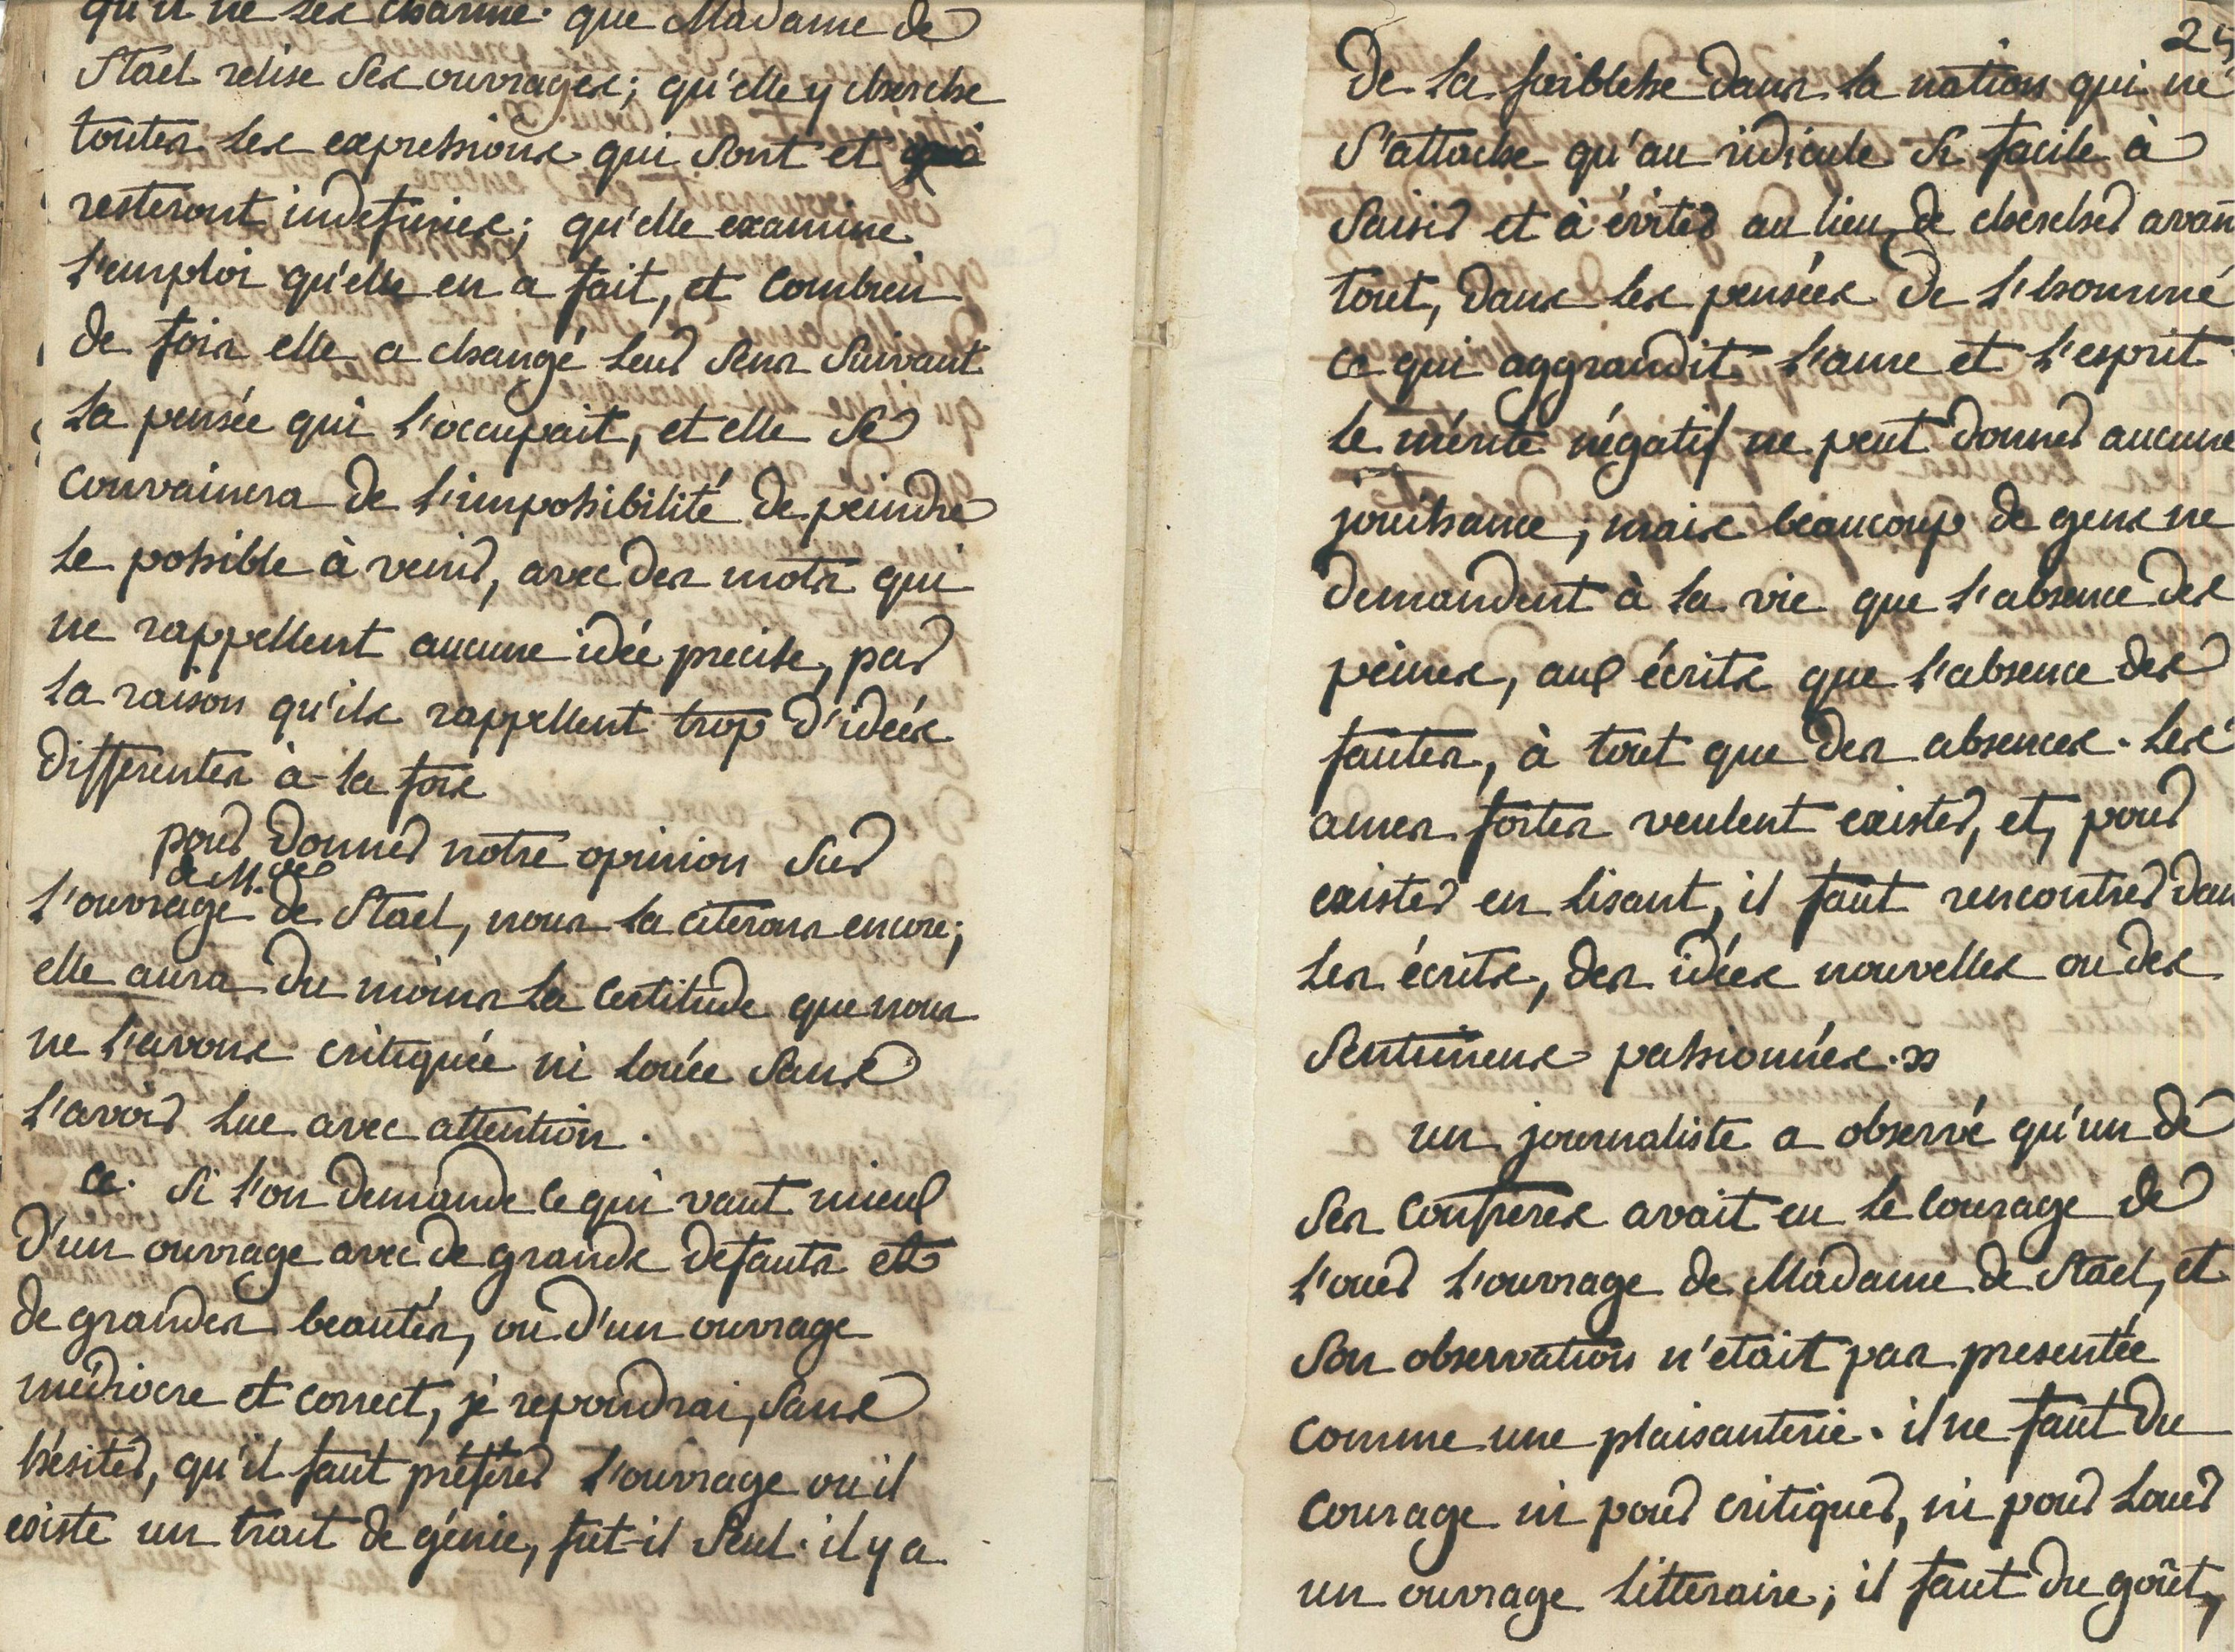 qu'il ne les charme. que Madame de
Stael relise ses ouvrages; qu'elle y cherche
toutes les expressions qui sont et
resteront indefinies; qu'elle examine
l'emploi qu'elle en a fait, et combien
de fois elle a changé leur sens suivant
la pensée qui l'occupait, et elle se
convaincra de l'impossibilité de peindre
le possible à venir, avec des mots qui
ne rappellent aucune idée precise, par
la raison qu'ils rappellent trop d'idées
differentes à-la fois
pour donner notre opinion sur
de M.de
l'ouvrage de Stael, nous la citerons encore;
elle aura du moins la certitude que nous
ne l'avons critiquée ni louée sans
l'avoir lue avec attention.
Si l'on demande ce qui vaut mieux
d'un ouvrage avec de grands defauts et
de grandes beautés, ou d'un ouvrage
médiocre et correct, je repondrai, sans
hésiter, qu'il faut préférer l'ouvrage ou il
existe un trait de génie, fut-il seul. il y a
24
de la foiblesse dans la nation qui ne
s'attache qu'au ridicule si facile à
saisir et à éviter au lieu de chercher avant
tout, dans les pensées de l'homme
ce qui aggrandit l'ame et l'esprit
le mérite négatif ne peut donner aucune
jouissance; mais beaucoup de gens ne
demandent à la vie que l'absence des
peines, aux écrits que l'absence des
fautes, à tout que des absences. Les
ames fortes veulent exister, et, pour
exister en lisant, il faut rencontrer dans
les écrits, des idées nouvelles ou des
sentimens passionnés. »
un journaliste a observé qu'un de
ses confreres avait eu le courage de
l'ouer l'ouvrage de Madame de Stael, et
son observation n'etait pas presentée
comme une plaisanterie. il ne faut du
courage ni pour critiquer, ni pour louer
un ouvrage litteraire; il faut du goût,